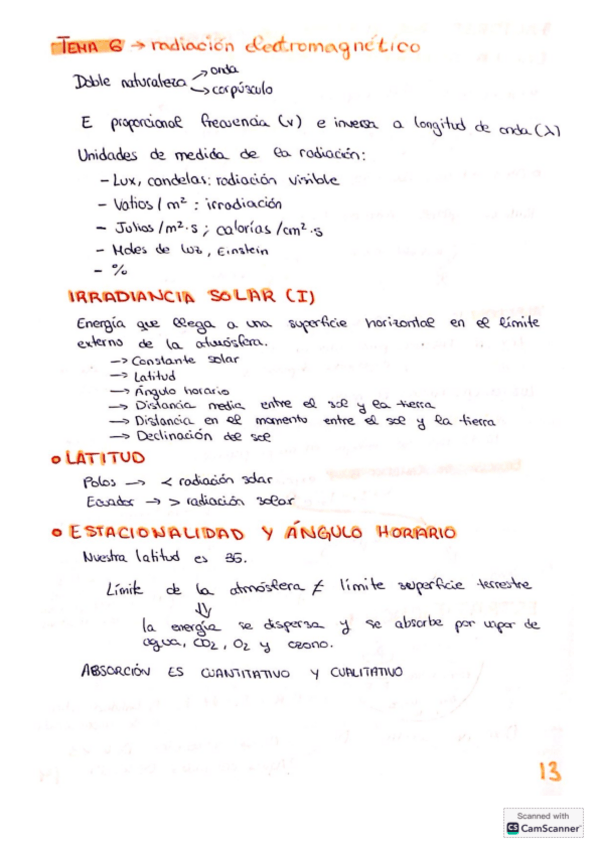 TEMA 6 → radiación electromagnético
Doble naturaleza → onda
→ corpúsculo
E proporcional frecuencia (v) e inversa a longitud de onda (λ)
Unidades de medida de la radiación:
- Lux, candelas: radiación visible
- Vatios / m² : irradiación
- Julios / m² · s ; calorías / cm² · s
- Moles de luz, Einstein
- %
IRRADIANCIA SOLAR (I)
Energía que llega a una superficie horizontal en el límite
externo de la atmósfera.
→ Constante solar
→ Latitud
→ Ángulo horario
→ Distancia media entre el sol y la tierra
→ Distancia en el momento entre el sol y la tierra
→ Declinación del sol
o LATITUD
Polos → < radiación solar
Ecuador → > radiación solar
o ESTACIONALIDAD Y ÁNGULO HORARIO
Nuestra latitud es 36.
Límite de la atmósfera ≠ límite superficie terrestre
⇓
la energía se dispersa y se absorbe por vapor de
agua, CO2, O2 y ozono.
ABSORCIÓN ES CUANTITATIVO Y CUALITATIVO
13
Scanned with
CS CamScanner